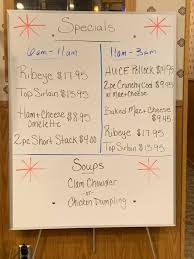 Specials
6am - 11am
Ribeye $17.95
Top Sirloin $13.95
Ham + Cheese $8.95
Omelette
2pc Short Stack $9.00
11am - 3pm
AUCE Pollock $9.95
2pc Crunchy Cod $9.95
w/ Mac + Cheese
Baked Mac + Cheese
$9.95
Ribeye $17.95
Top Sirloin $13.95
Soups
Clam Chowder
or
Chicken Dumpling